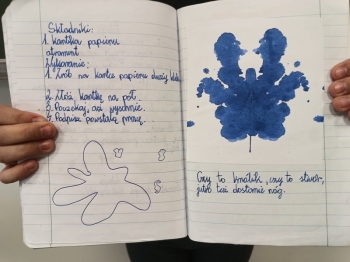 Składniki:
1. Kartka papieru
atrament
Wykonanie:
1. Zrób na kartce papieru duży kleks
2. Złóż kartkę na pół.
3. Poczekaj, aż wyschnie.
4. Podpisz powstałą pracę.
Czy to kwiatek, czy to stwór,
jutro też dostanie nóg.